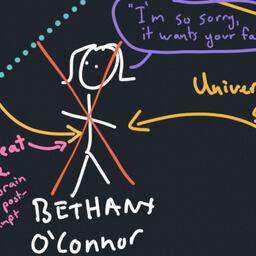 "I'm so sorry,
it wants your fa
Univer
eat
brain
post-
mpt
BETHANY
O'Connor